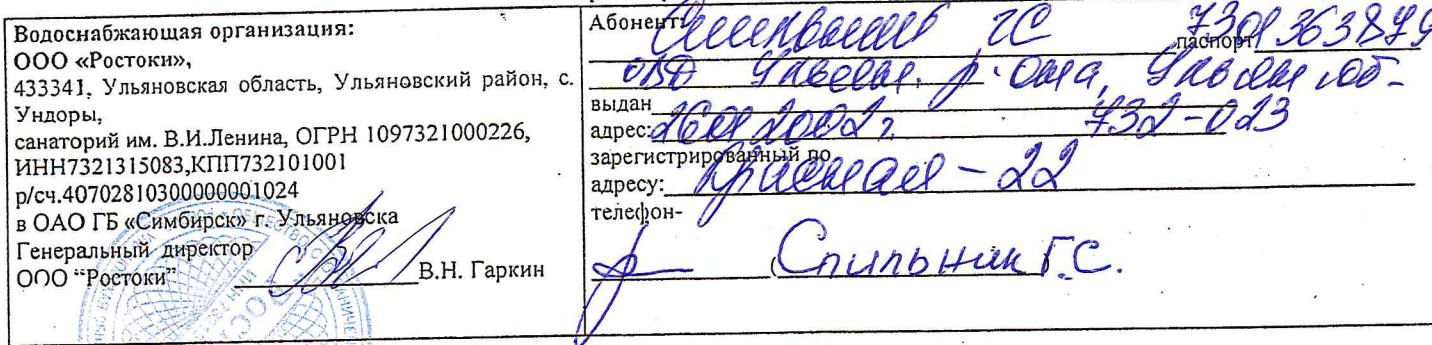 Водоснабжающая организация:
ООО «Ростоки»,
433341, Ульяновская область, Ульяновский район, с.
Ундоры,
санаторий им. В.И.Ленина, ОГРН 1097321000226,
ИНН7321315083,КПП732101001
р/сч.40702810300000001024
в ОАО ГБ «Симбирск» г. Ульяновска
Генеральный директор
ООО “Ростоки” В.Н. Гаркин
Абонент: ГС паспорт 7301363879
ОВД Ульян. р-она, Ульян об-
выдан
адрес: 2002г 732-023
зарегистрированный по
адресу: - 22
телефон-
(Спильник Г.С.